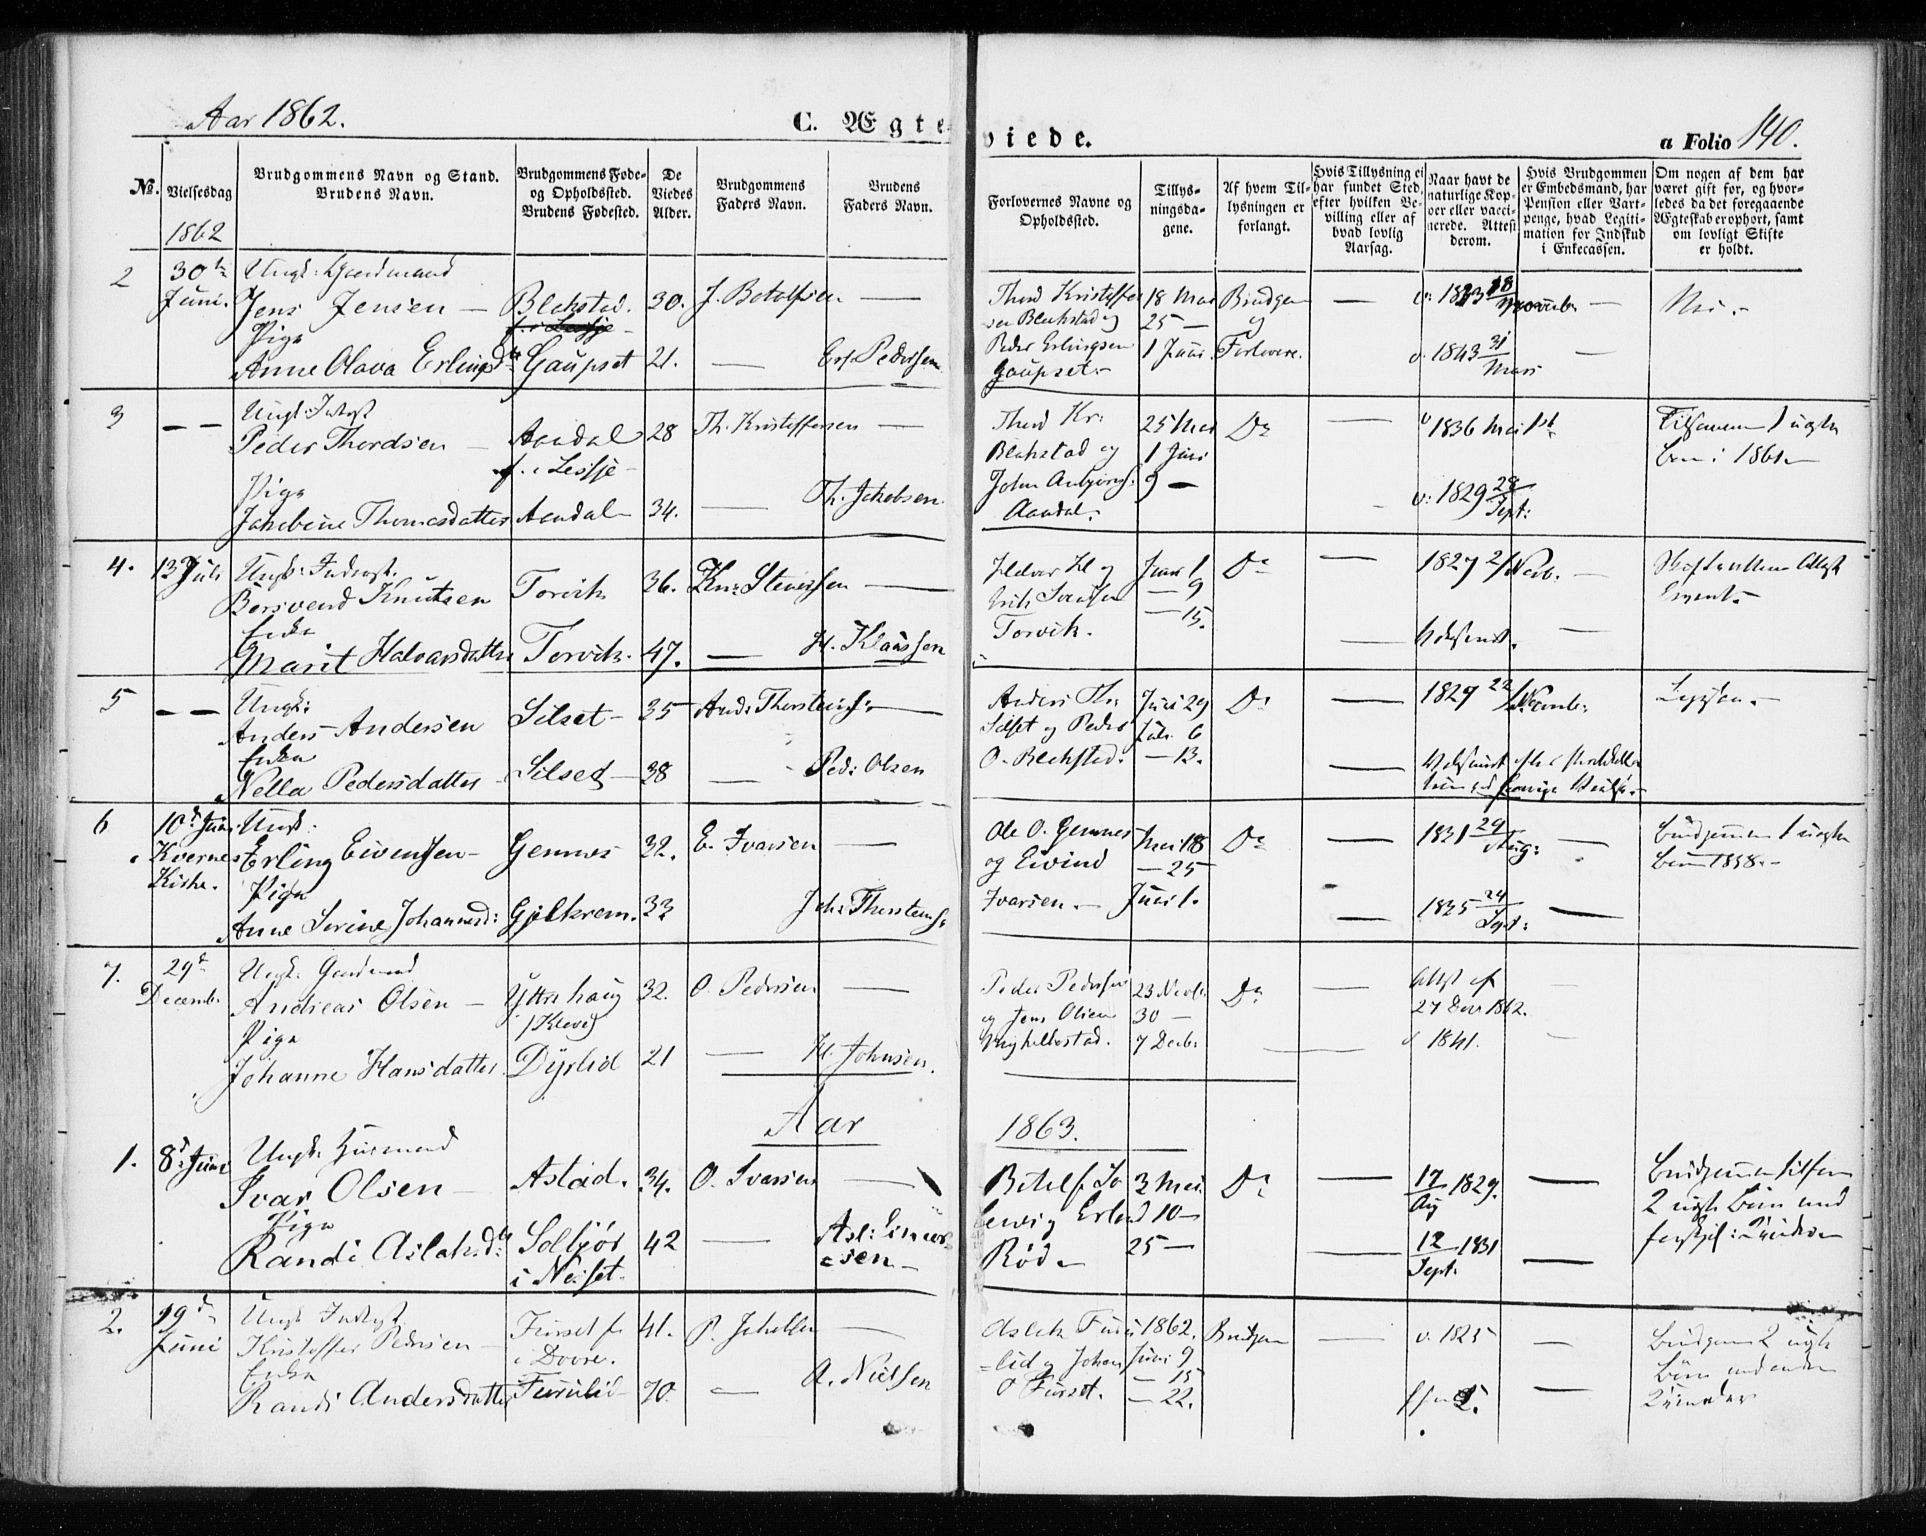 Aar 1862.
C. Ægteviede.
a Folio 140.
№.
Vielsesdag
1862
Brudgommens Navn og Stand.
Brudens Navn.
Brudgommens Føde-
og Opholdssted.
Brudens Fødested.
De
Viedes
Alder.
Brudgommens
Faders Navn.
Brudens
Faders Navn.
Forlovernes Navne og
Opholdssted.
Tillys-
ningsda-
gene.
Af hvem Til-
lysningen er
forlangt.
Hvis Tillysning ei
har fundet Sted,
efter hvilken Be-
villing eller af
hvad lovlig
Aarsag.
Naar havt de
naturlige Kop-
per eller vacci-
nerede. Attest
derom.
Hvis Brudgommen
er Embedsmand, har
Pension eller Vart-
penge, hvad Legiti-
mation for Indskud
i Enkecassen.
Om nogen af dem har
været gift før, og hvor-
ledes da det foregaaende
Ægteskab er ophørt, samt
om lovligt Skifte
er holdt.
2
30te
Juni.
Ungk: Gaardmand
Jens Jensen —
Pige
Anne Olava Erlingsd
Blekstad.
Gaupset
30.
21.
J. Botolfsen
—
Erl. Pedersen
Thord Kristoffer
sen Blekstad og
Peder Erlingsen
Gaupset.
18 Mai
25 —
1 Juni
Brudgom
og
Forlovere.
—
18
November
v. 1843 31
Mars
Nei.
3
— —
Ungk: Inderst
Peder Thordsen —
Pige
Jakobine Thomasdatter
Aandal
f. i Lessje —
Aandal
28
34.
Th. Kristoffersen
—
Th. Jakobsen
Thord Kr:
Blekstad og
John Anbjørns:
Aandal.
25 Mai
1 Juni
9 —
Do
—
v 1836 Mai 1st
v: 1829 28
Sept:
Tilsammen 1 uægte
Barn i 1861
4.
13d Juli
Ungk: Inderst.
Baarsvend Knutsen
Enke
Marit Halvorsdatter
Torvik
Torvik.
36.
47.
Knu: Stenersen
—
H. Klaussen
Halvor Kl og
Erik Svendsen
Torvik.
Juni 1
— 9
— 15.
Do
—
1827 2/Novb.
5
— —
Ungk:
Anders Andersen
Enke
Nella Pedersdatter
Silset
Silset
35
38
And: Thorsteins:
—
Ped: Olsen
Anders Th:
Silset og Peder
O. Blekstad.
Juni 29
Juli 6
— 13.
Do
—
1829 22/Novemb:
6
10d Juni
Kvernes
Kirke.
Ungk:
Erling Eivensen —
Pige
Anne Serine Johannesd:
Gemnes
Gjelkrem.
32.
33
E. Ivarsen
—
Joh: Thorsteins:
Ole O. Gemnes
og Eivind
Ivarsen.
Mai 18
— 25
Juni 1.
Do
—
1831 29
Aug:
1835 24
Sept:
Brudgommen 1 uægte
Barn 1858.
7.
29d
Decemb.
Ungk: Gaardmand
Andreas Olsen —
Pige
Johanne Hansdatter
Yttre haug
/Kleve/
Dyrlid
32.
21
O. Pedersen
—
H. Johnsen.
Peder Pedersen
og Jens Olsen
23 Novb:
30 —
7 Decb:
Do
—
Attst af
27 Decr 1862.
v 1841.
Aar 1863.
1.
8d Juni
Ungk: Huusmand
Ivar Olsen —
Pige
Randi Aslaksd:
Astad.
Solbjør
i Neisset.
34.
42
O. Ivarsen
—
Asl: Einar-
sen
Botolf Jo
Erlend
Rød
3 Mai.
10 —
25 —
Do
—
17
Aug 1829.
12
Sept. 1831
Brudgommen tilforn
2 uægte Børn med
forskjel: Qvinder
2.
29d
Juni
Ungk. Inderst
Kristoffer Pedersen —
Enke
Randi Andersdatter
Furset f.
i Dovre.
Furulid
41.
70.
P. Jakobsen
—
A. Nielsen
Aslak Furu-
lid og Johan
O Furset.
1862.
Juni 9
— 15
— 22.
Brudgom
—
v. 1825
Brudgommen 2 uægte
Børn
Qvinder